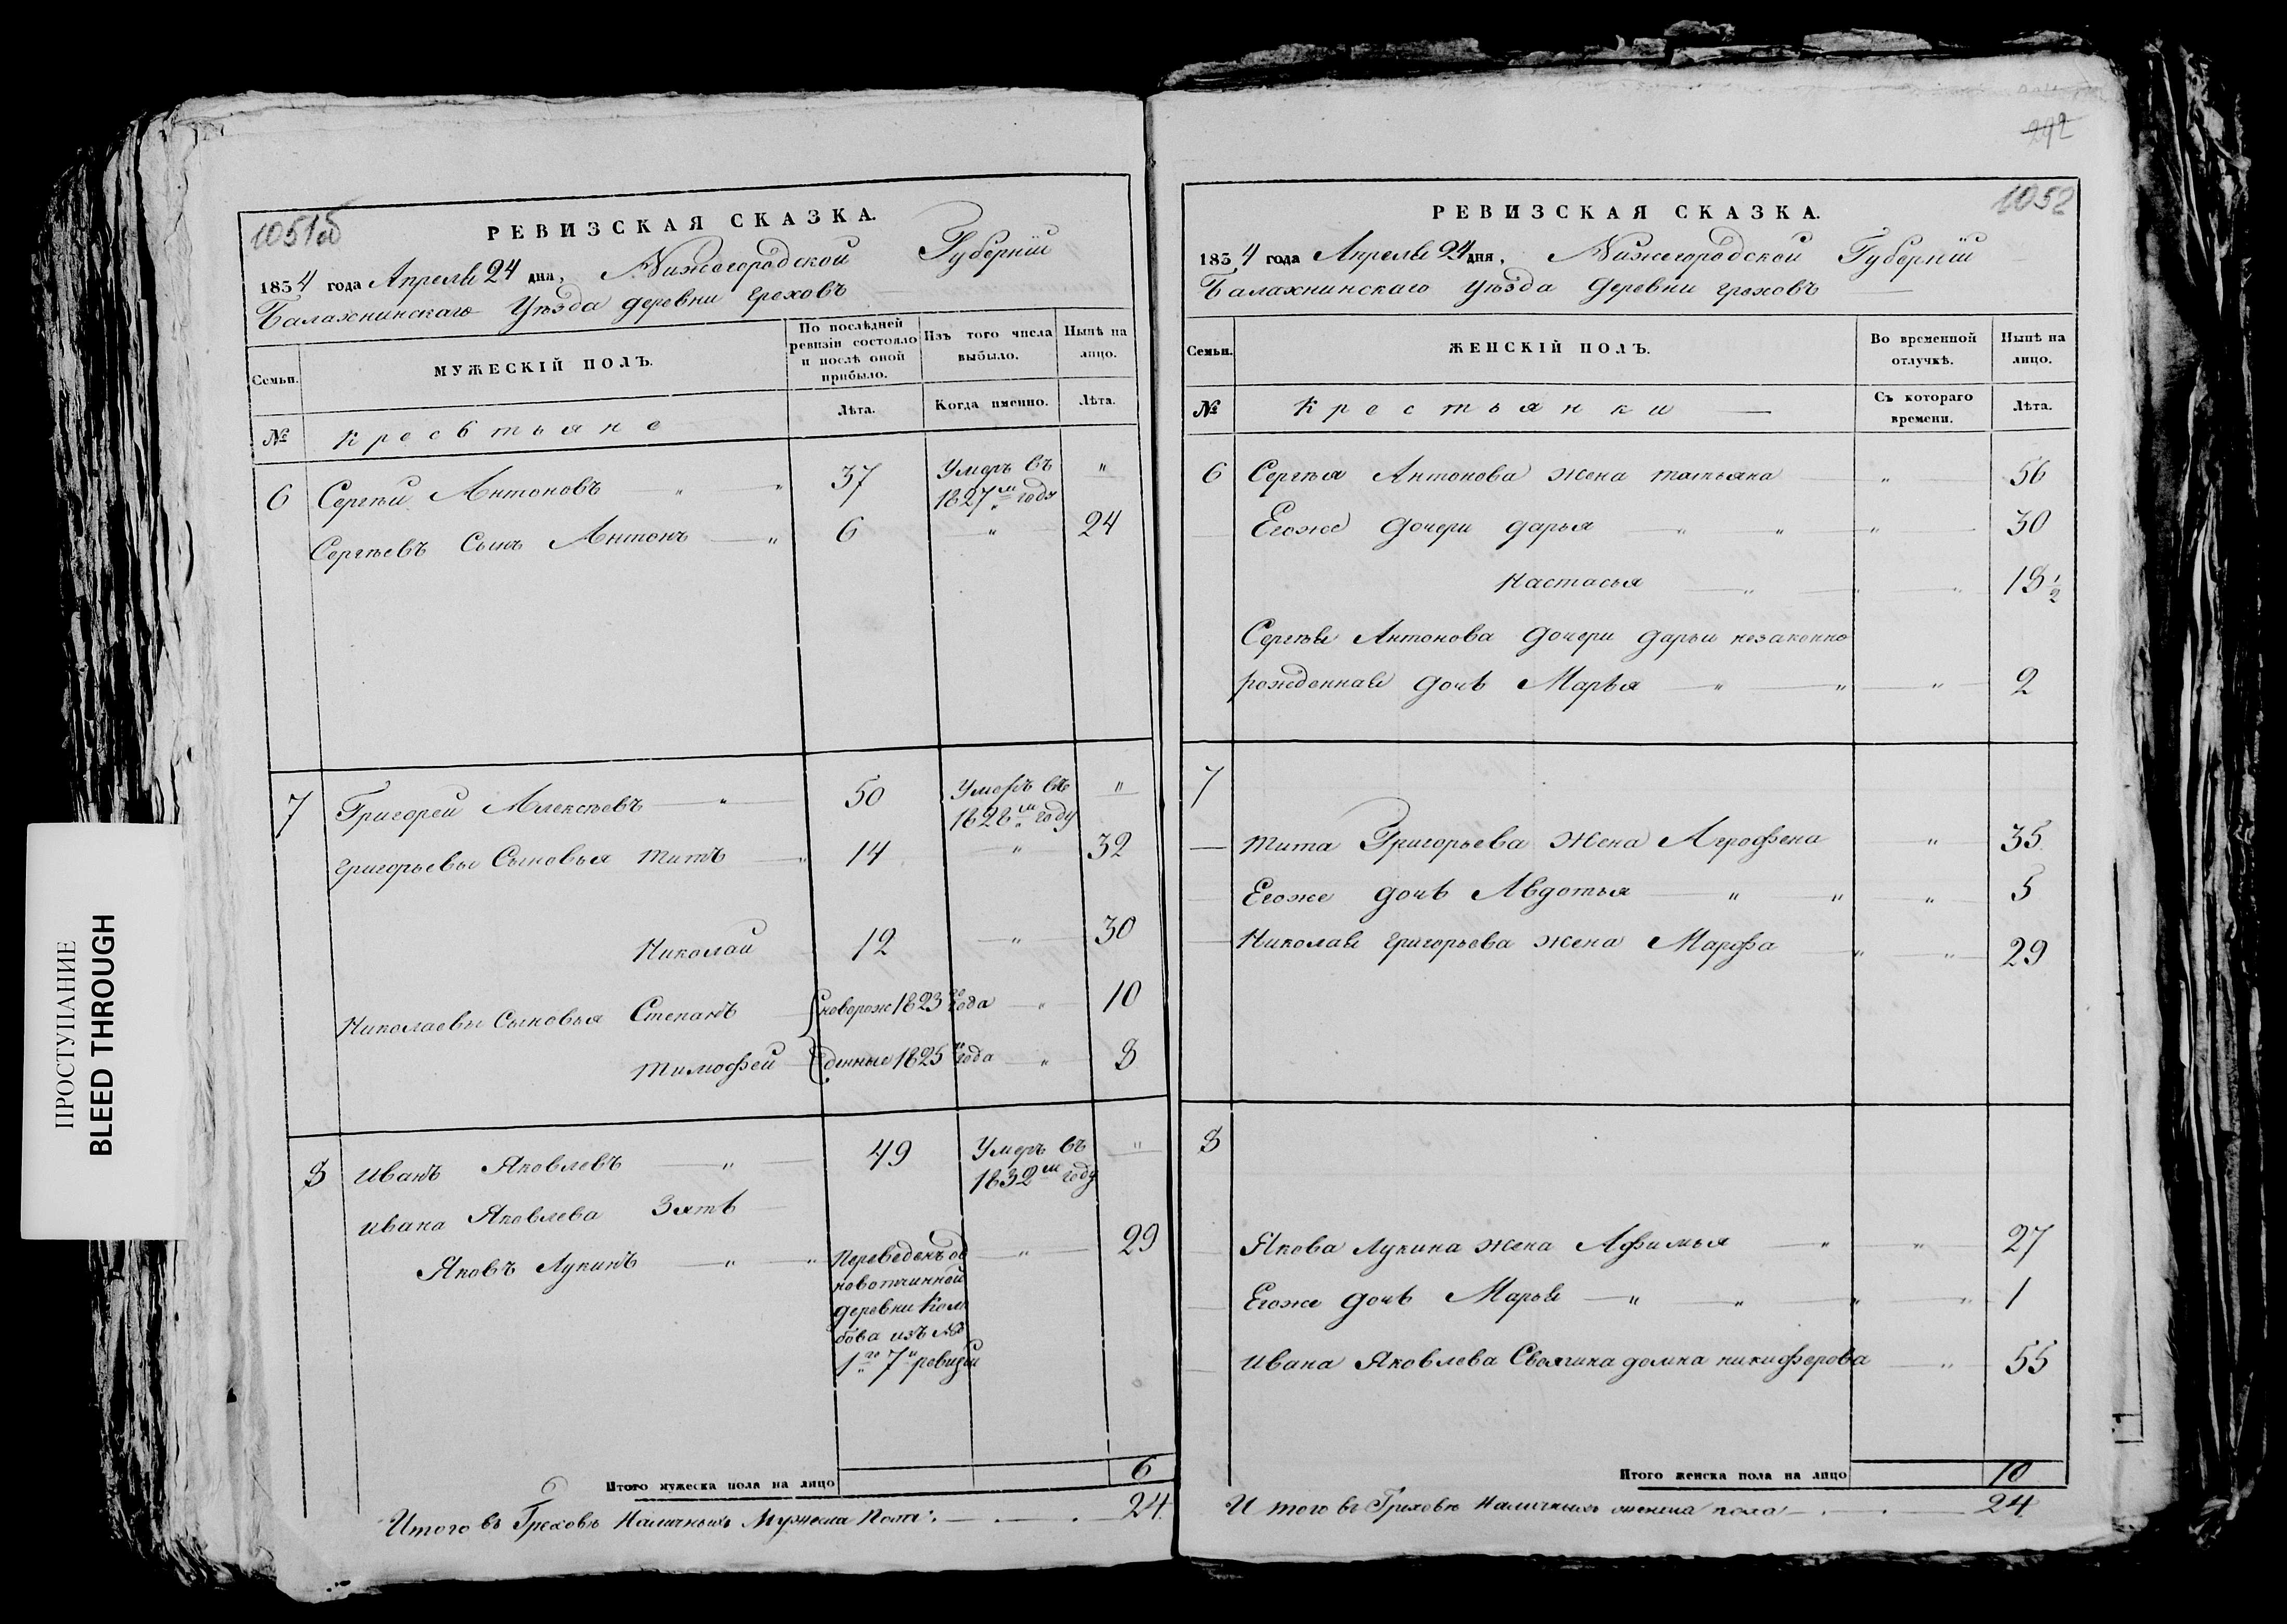 1051об
РЕВИЗСКАЯ СКАЗКА.
1834 года Апреля 24 дня, Нижегородской Губернiи
Балахнинскаго Уѣзда деревни греховъ
Семьи.
МУЖЕСКІЙ ПОЛЪ.
По послѣдней ревизіи состояло и послѣ оной прибыло.
Изъ того числа выбыло.
Нынѣ на лицо.
№
Крестьяне
Лѣта.
Когда именно.
Лѣта.
6 Сергѣй Антоновъ 37 Умеръ въ 1827м году "
Сергѣевъ Сынъ Антонъ 6 " 24
7 Григорей Алексѣевъ 50 Умеръ въ 1828м году "
григорьевы Сыновья титъ 14 " 32
Николай 12 " 30
Николаевы Сыновья Степанъ новорож 1823го года " 10
тимофей денные 1825 года " 8
8 иванъ Яковлевъ 49 Умеръ въ 1832м году "
ивана Яковлева Зять
Яковъ Лукинъ " переведенъ од " 29
новотчинной
деревни Кол
бова изъ №
1го 7й ревизiи
Итого мужеска пола на лицо 6
Итого въ Греховѣ Наличныхъ Мужеска Пола 24
242
1052
РЕВИЗСКАЯ СКАЗКА.
1834 года Апреля 24 дня, Нижегородской Губернiи
Балахнинскаго Уѣзда деревни греховъ
Семьи.
ЖЕНСКІЙ ПОЛЪ.
Во временной отлучкѣ.
Нынѣ на лицо.
№
Крестьянки
Съ котораго времени.
Лѣта.
6 Сергѣя Антонова жена татьяна " 56
Егоже дочери дарья " 30
Настасья " 18 1/2
Сергѣя Антонова дочери дарьи незаконно
рожденная дочь Марья " 2
7
тита Григорьева Жена Агрофена " 35
Егоже дочь Авдотья " 5
Николая григорьева жена Марфа " 29
8
Якова лукина жена Афимья " 27
Егоже дочь Марья " 1
ивана Яковлева Своячина домна никифорова " 55
Итого женска пола на лицо 10
Итого въ Греховѣ Наличныхъ женска пола 24
ПРОСТУПАНИЕ
BLEED THROUGH